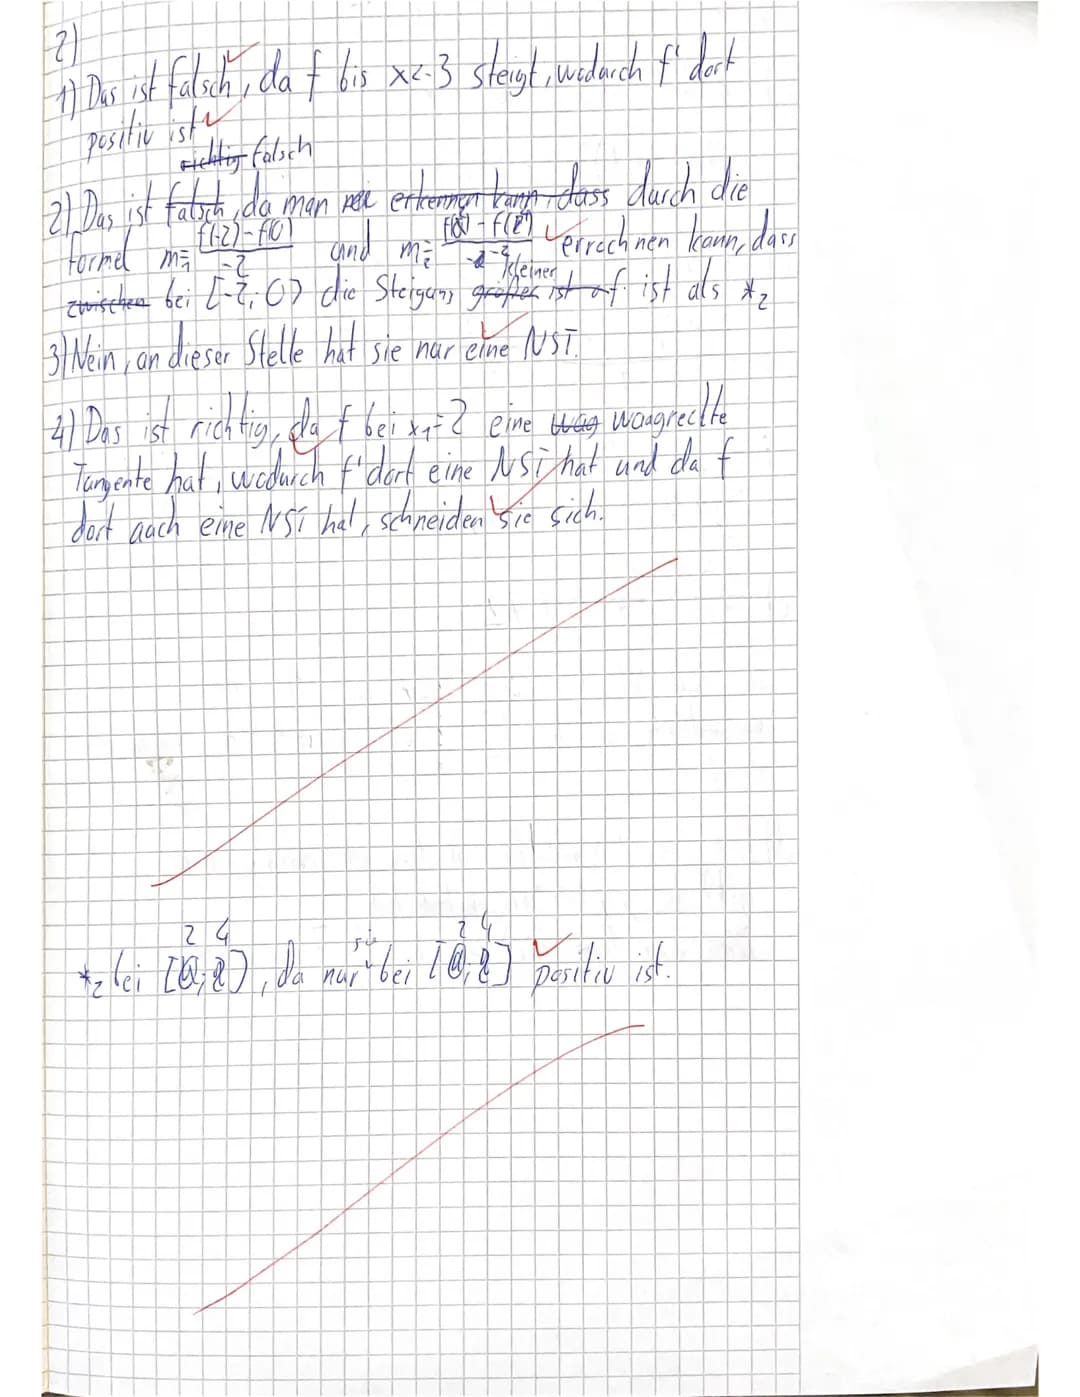 2)
1) Das ist falsch, da f bis x<-3 steigt, wodurch f' dort
positiv ist
richtig falsch
2) Das ist falsch, da man erkennen kann, dass durch die
Formel m₁= f(-2)-f(0) / -2 und m₂= / -2 errechnen kann, dass
kleiner
zwischen bei [-2;0] die Steigung größer ist af ist als *₂
3) Nein, an dieser Stelle hat sie nur eine NST.
4) Das ist richtig, da f bei x₁=2 eine Wag waagrechte
Tangente hat, wodurch f' dort eine NST hat und da f
dort auch eine NST hat, schneiden sie sich.
2 4 sie 2 4
*₂ bei [0;2], da nur bei [0;2] positiv ist.